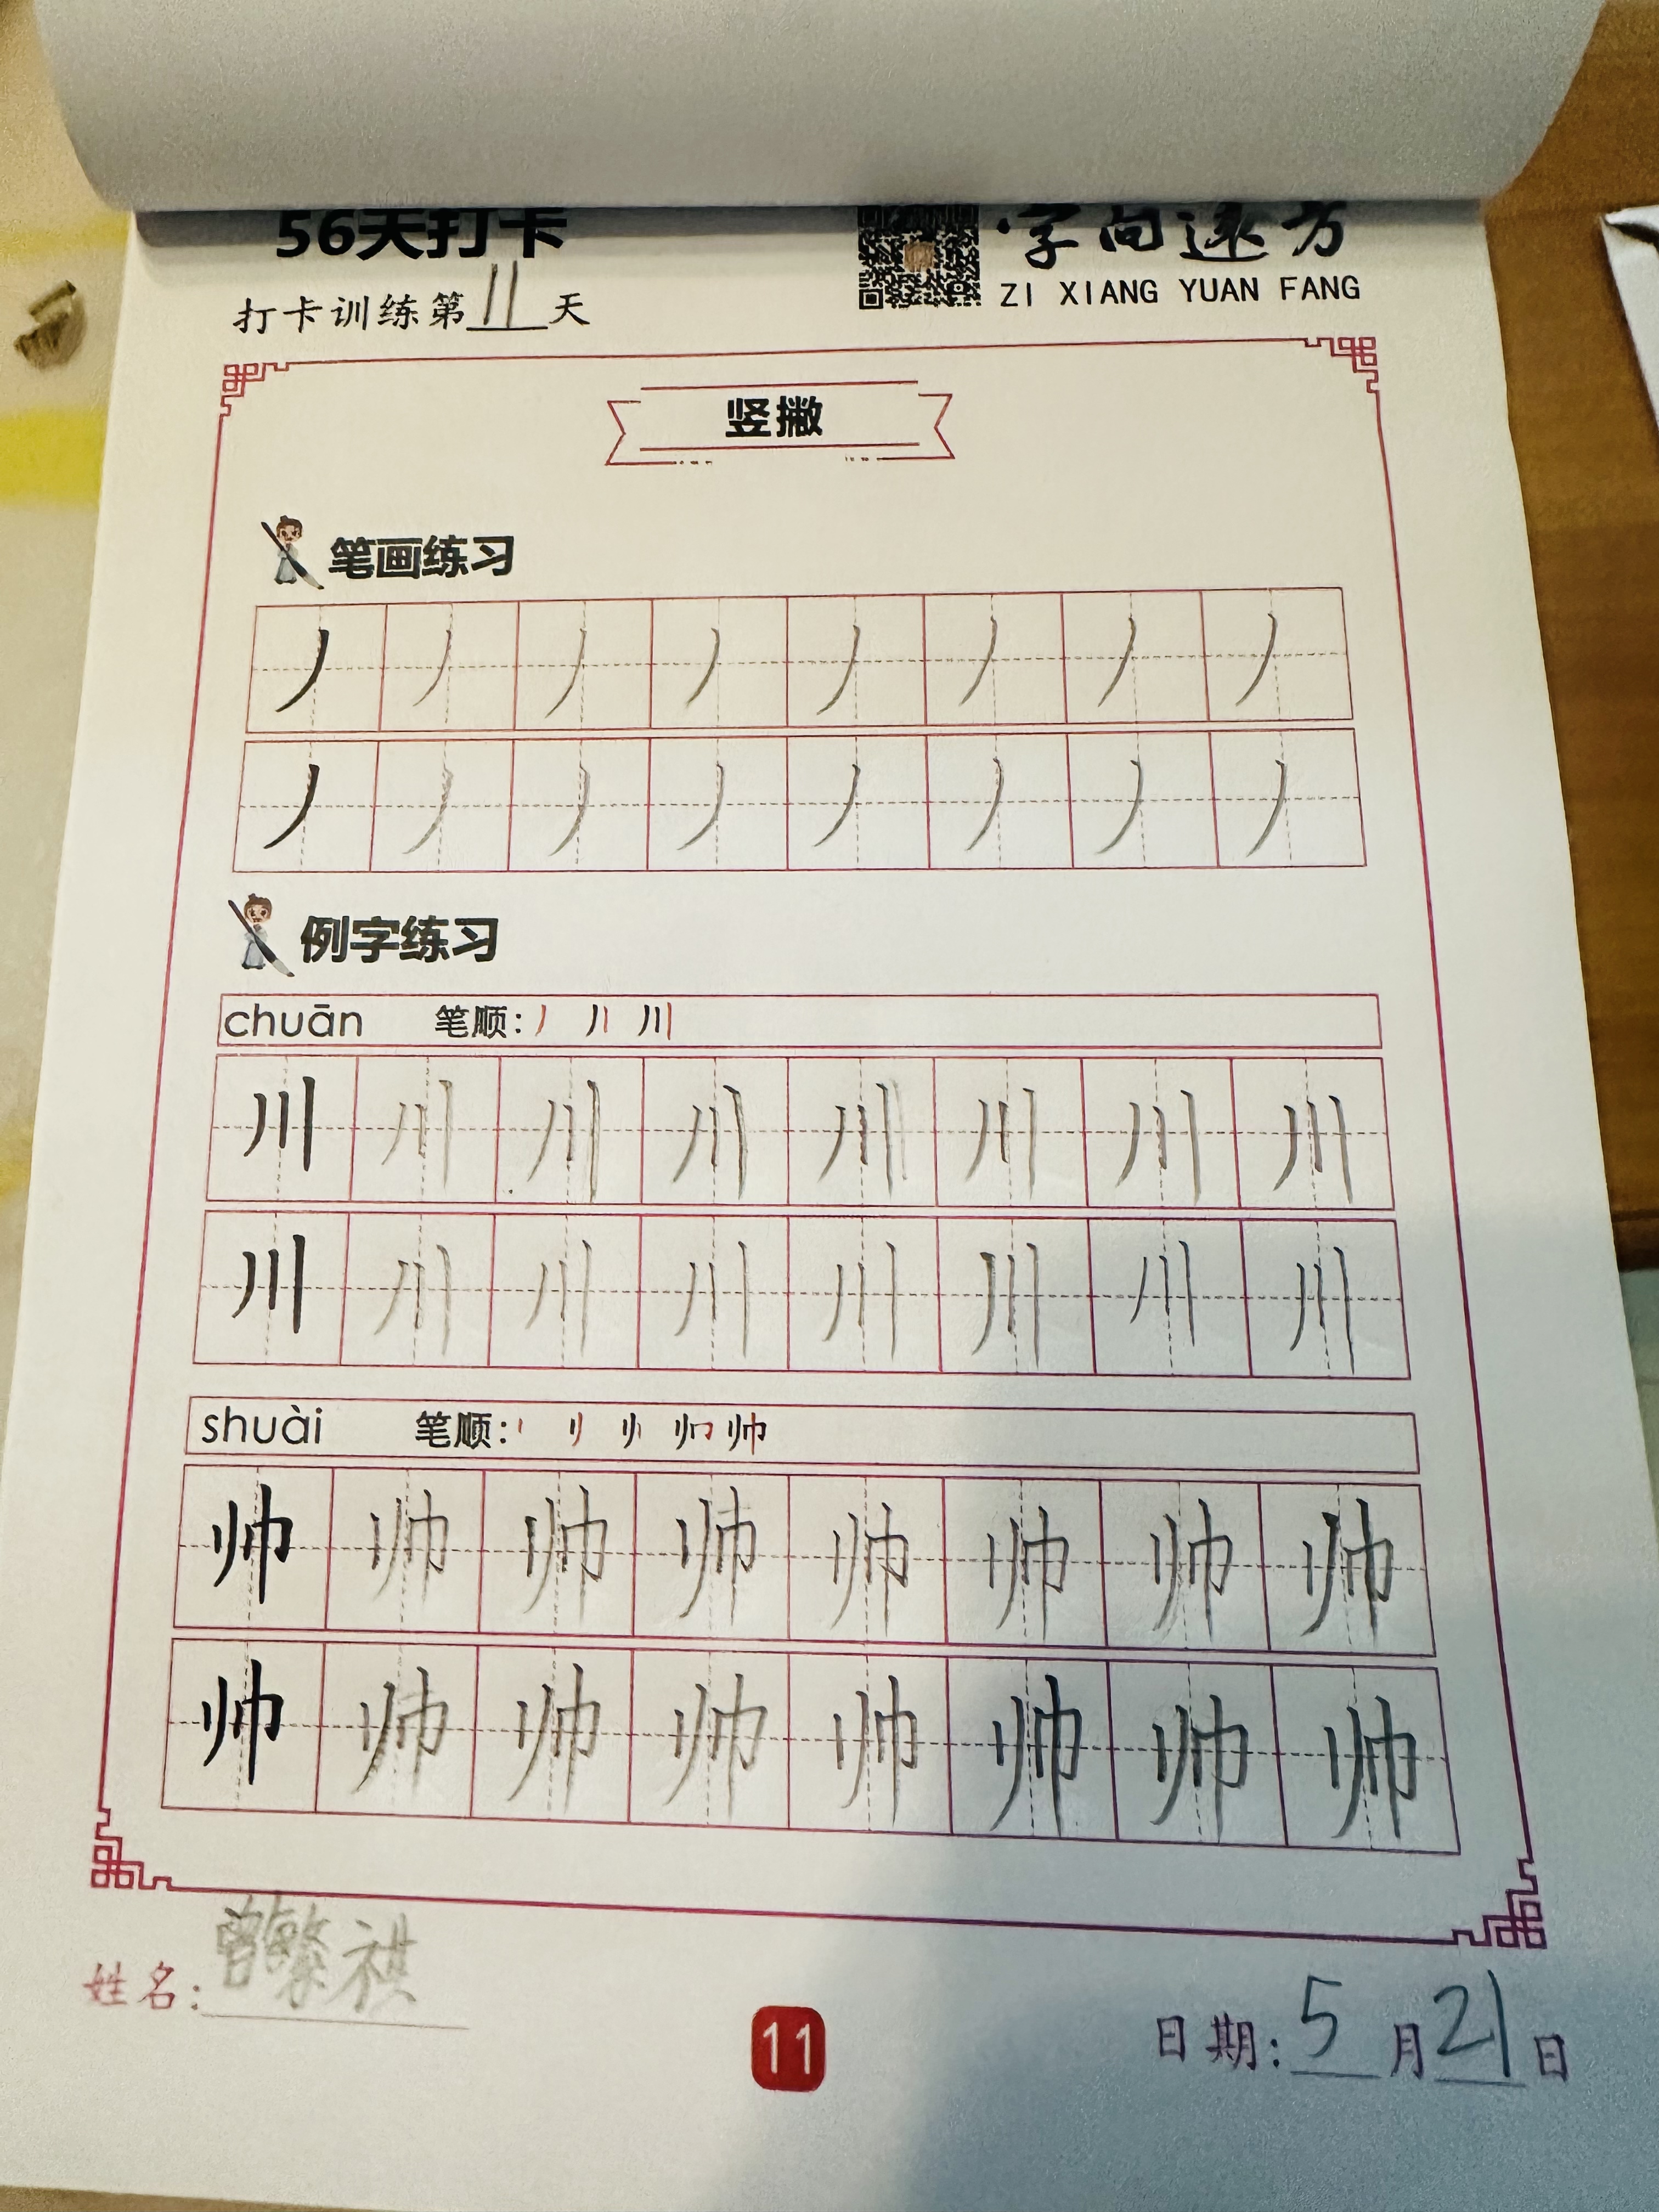 56天打卡
字向远方
打卡训练第11天
ZI XIANG YUAN FANG
竖撇
笔画练习
丿 丿 丿 丿 丿 丿 丿 丿
丿 丿 丿 丿 丿 丿 丿 丿
例字练习
chuān 笔顺: 丿 丿丨 川
川 川 川 川 川 川 川 川
川 川 川 川 川 川 川 川
shuài 笔顺: 帅
帅 帅 帅 帅 帅 帅 帅 帅
帅 帅 帅 帅 帅 帅 帅 帅
姓名: 曾繁祺
11
日期: 5月21日